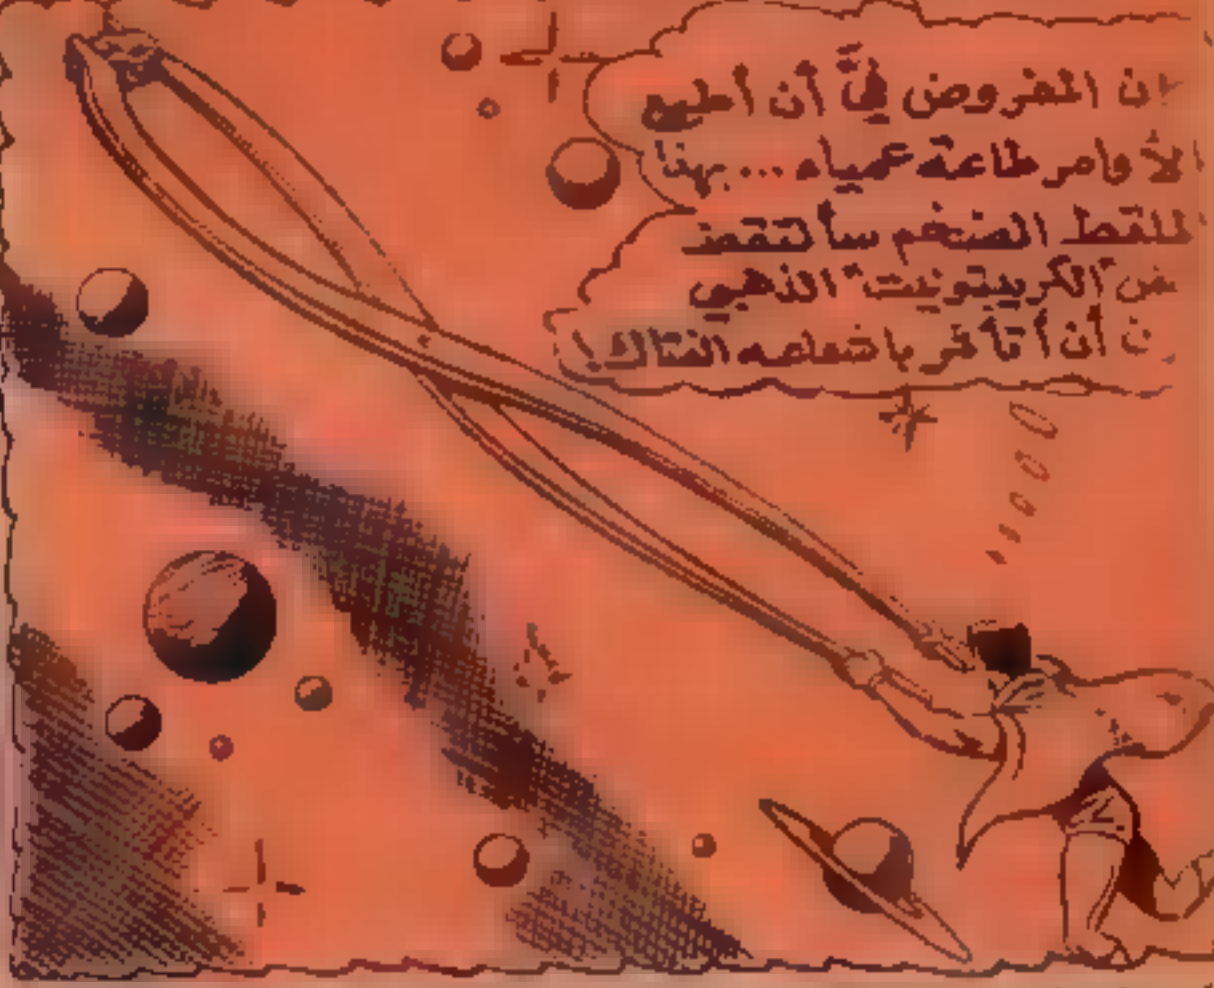 ان المفروض فيَّ أن أطيع
الأوامر طاعة عمياء ... بهذا
الملقط الضخم سألتقط
"الكريبتونيت" الذهبي
أن أتأثر باشعاعه الفتاك!